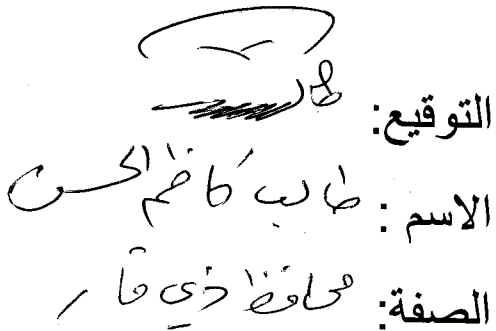 التوقيع:
الاسم : طالب كاظم الحسن
الصفة: محافظ ذي قار